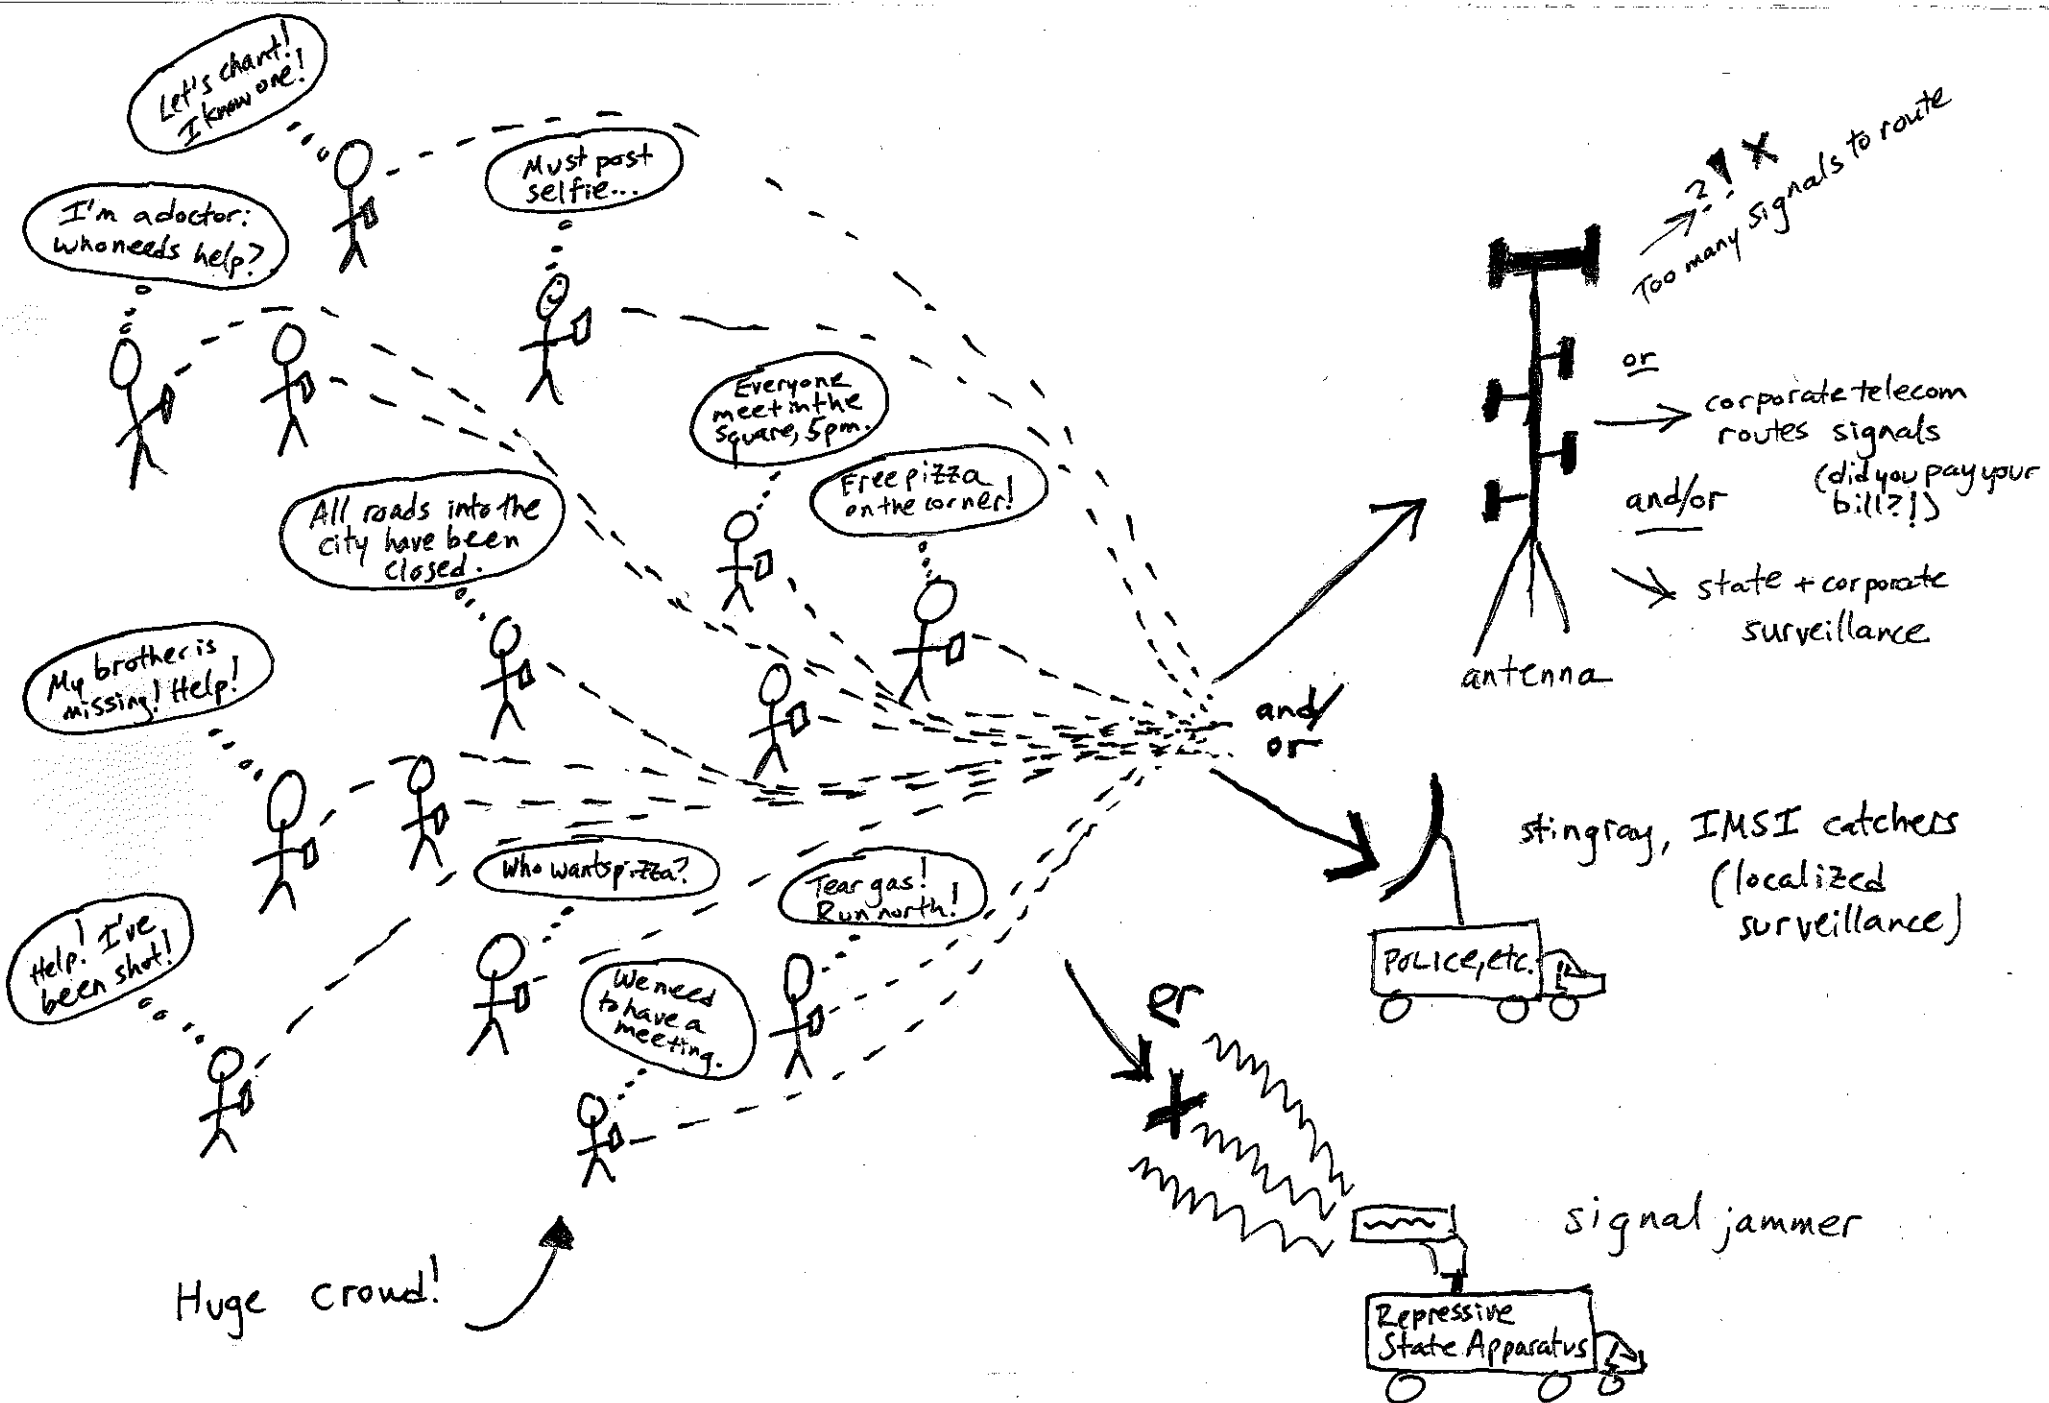 Let's chant!
I know one!
Must post
selfie...
I'm a doctor:
who needs help?
Everyone
meet in the
square, 5pm.
Free pizza
on the corner!
All roads into the
city have been
closed.
My brother is
missing! Help!
Who wants pizza?
Tear gas!
Run north!
Help! I've
been shot!
We need
to have a
meeting.
Huge crowd!
?! X
Too many signals to route
or
corporate telecom
routes signals
(did you pay your
bill?!)
and/or
state + corporate
surveillance
antenna
and/
or
stingray, IMSI catchers
(localized
surveillance)
POLICE, etc.
or
signal jammer
Repressive
State Apparatus